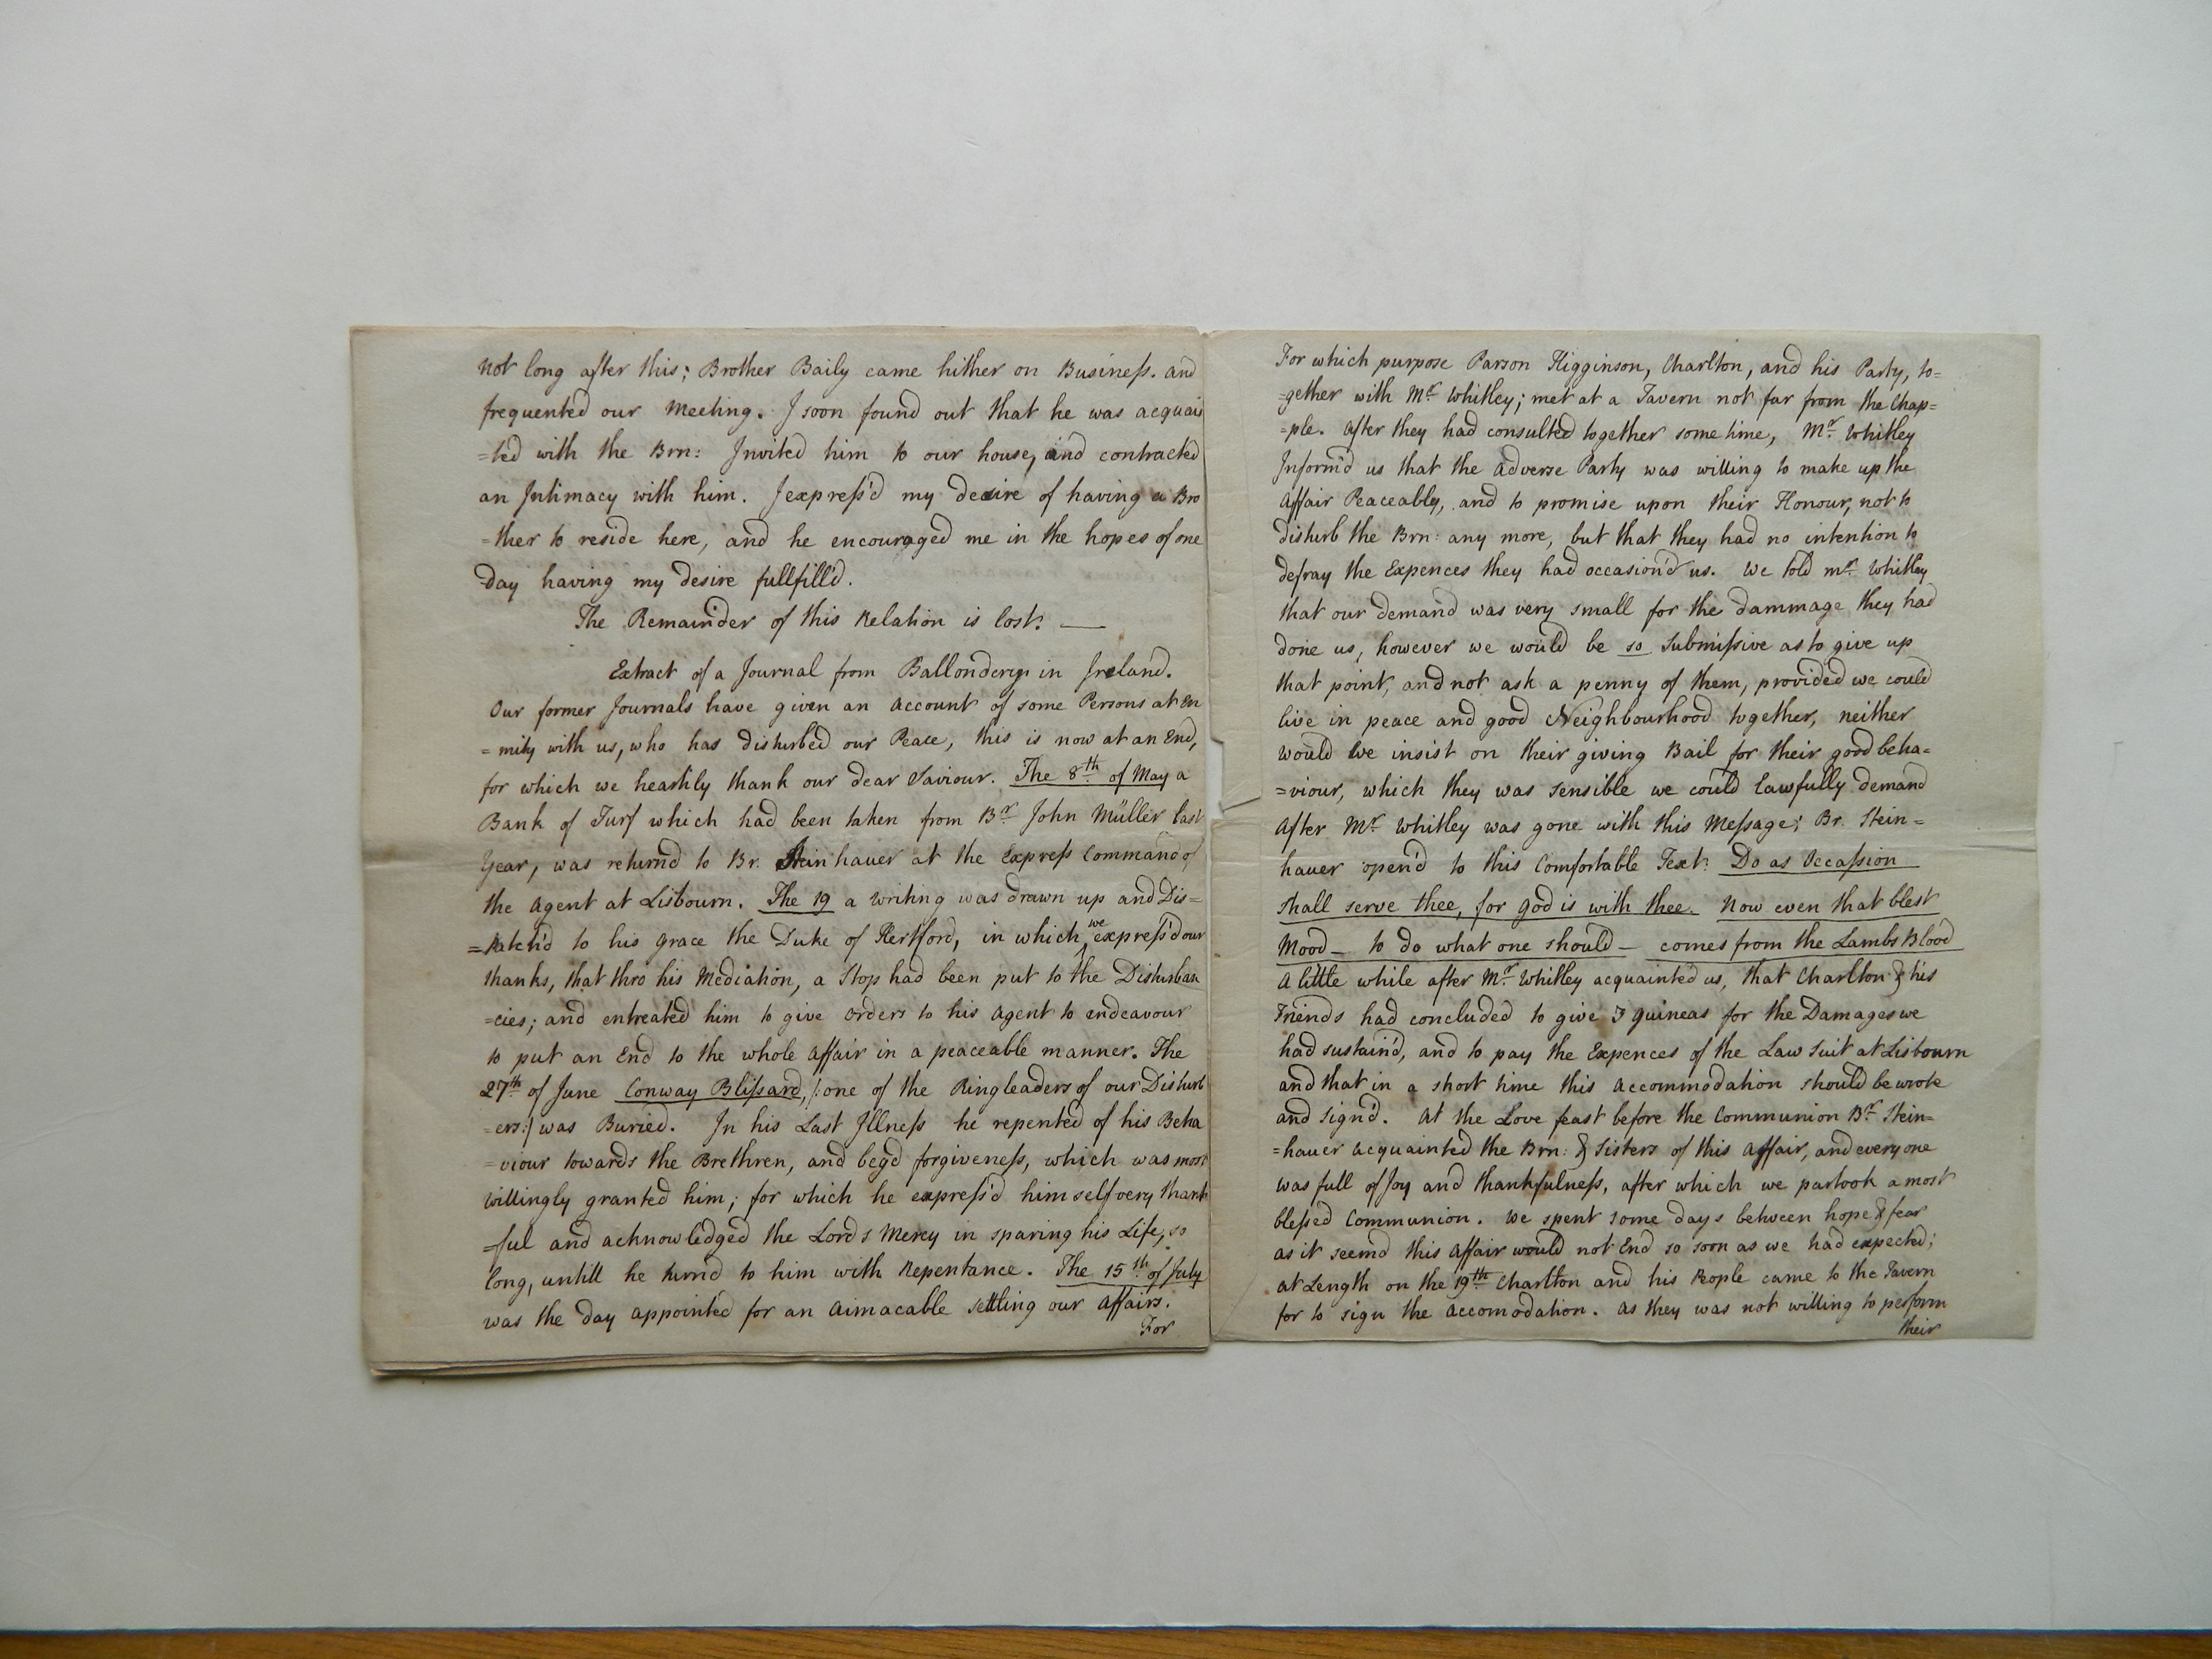 not long after this; Brother Baily came hither on Business. and
frequented our Meeting. I soon found out that he was acquain
=ted with the Brn: Invited him to our house, and contracted
an Intimacy with him. I express'd my desire of having a Bro
=ther to reside here, and he encouraged me in the hopes of one
day having my desire fullfill'd.
The Remainder of this Relation is lost. —
Extract of a Journal from Ballonderry in Ireland.
Our former Journals have given an Account of some Persons at En
=mity with us, who has disturbed our Peace, this is now at an End,
for which we heartily thank our dear Saviour. The 8th of May a
Bank of Turf which had been taken from Br John Müller last
Year, was return'd to Br. Steinhauer at the Express Command of
the Agent at Lisbourn. The 19 a writing was drawn up and Dis=
=patch'd to his Grace the Duke of Hertford, in which we express'd our
thanks, that thro his Mediation, a Stop had been put to the Disturban
=cies; and entreated him to give Orders to his Agent to endeavour
to put an End to the whole Affair in a peaceable manner. The
27th of June Conway Blissard, /: one of the Ringleaders of our Disturb
=ers:/ was Buried. In his Last Illness he repented of his Beha
=viour towards the Brethren, and beg'd forgiveness, which was most
willingly granted him; for which he express'd himself very thank
=ful and acknowledged the Lords Mercy in sparing his Life, so
long, untill he turn'd to him with Repentance. The 15th of July
was the day appointed for an aimacable settling our Affairs.
For
For which purpose Parson Higginson, Charlton, and his Party, to=
=gether with Mr Whitley; met at a Tavern not far from the Chap=
=ple. After they had consulted together some time, Mr Whitley
Inform'd us that the adverse Party was willing to make up the
Affair Peaceably, and to promise upon their Honour, not to
disturb the Brn: any more, but that they had no intention to
defray the Expences they had occasion'd us. We told Mr Whitley
that our demand was very small for the dammage they had
done us, however we would be so Submissive as to give up
that point, and not ask a penny of them, provided we could
live in peace and good Neighbourhood together, neither
would we insist on their giving Bail for their good beha=
=viour, which they was sensible we could lawfully demand
After Mr Whitley was gone with this Message; Br. Stein=
hauer open'd to this Comfortable Text: Do as Occassion
shall serve thee, for God is with thee. Now even that blest
Mood — to do what one should — comes from the Lambs Blood
A little while after Mr Whitley acquainted us, that Charlton & his
Friends had concluded to give 3 guineas for the Damages we
had sustain'd, and to pay the Expences of the Law Suit at Lisbourn
and that in a short time this Accommodation should be wrote
and Sign'd. At the Love feast before the Communion Br Stein=
=hauer acquainted the Brn: & Sisters of this Affair, and every one
was full of Joy and thankfulness, after which we partook a most
blessed Communion. We spent some days between hope & fear
as it seem'd this Affair would not End so soon as we had expected;
at Length on the 19th Charlton and his People came to the Tavern
for to sign the Accomodation. As they was not willing to perform
their